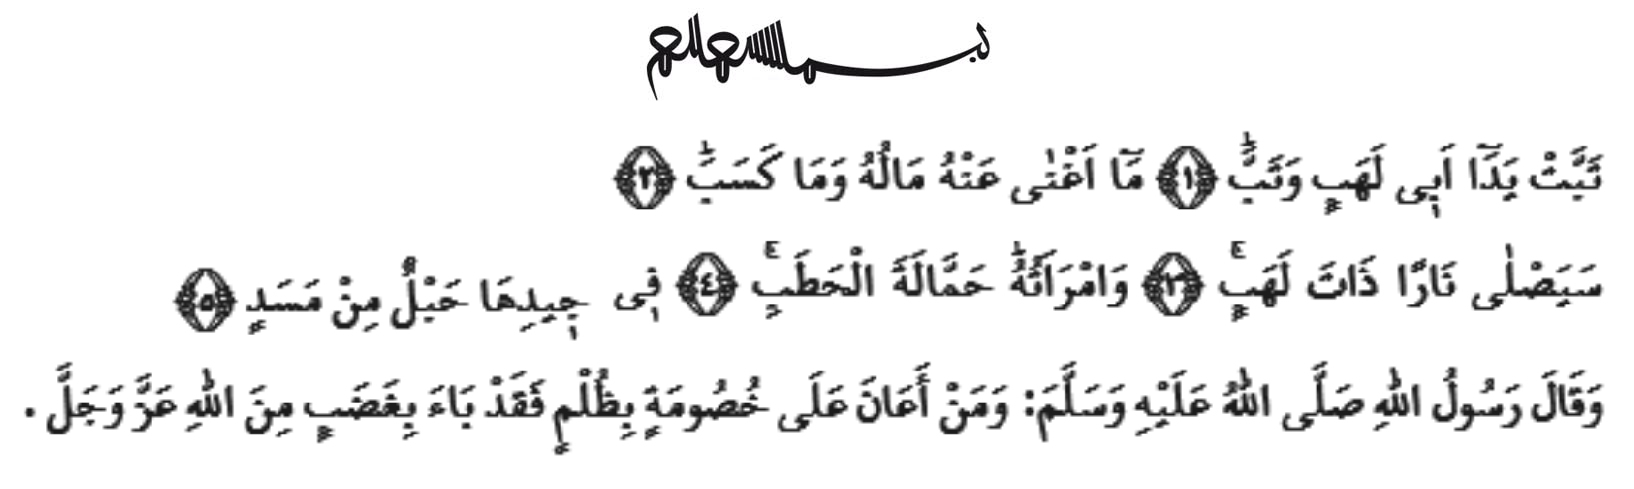 بسم الله الرحمن الرحيم
تَبَّتْ يَدَآ اَبِى لَهَبٍ وَتَبَّؕ ﴿١﴾ مَآ اَغْنٰى عَنْهُ مَالُهُ وَمَا كَسَبَؕ ﴿٢﴾
سَيَصْلٰى نَارًا ذَاتَ لَهَبٍۚ ﴿٣﴾ وَامْرَاَتُهُؕ حَمَّالَةَ الْحَطَبِۚ ﴿٤﴾ فٖى جٖيدِهَا حَبْلٌ مِنْ مَسَدٍ ﴿٥﴾
وَقَالَ رَسُولُ اللهِ صَلَّى اللهُ عَلَيْهِ وَسَلَّمَ: وَمَنْ أَعَانَ عَلَى خُصُومَةٍ بِظُلْمٍ فَقَدْ بَاءَ بِغَضَبٍ مِنَ اللهِ عَزَّ وَجَلَّ .